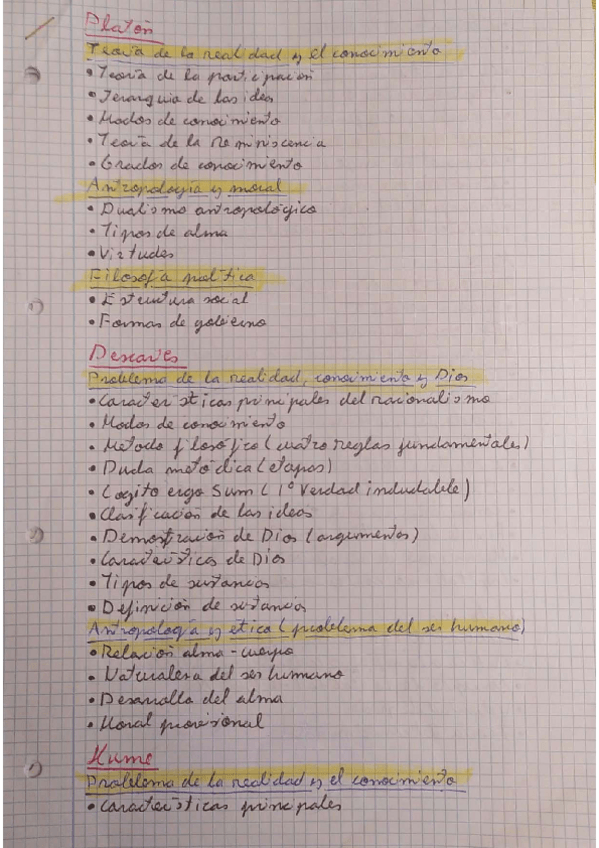 Platón
Teoría de la realidad y el conocimiento
• Teoría de la participación
• Jerarquía de las ideas
• Modos de conocimiento
• Teoría de la reminiscencia
• Grados de conocimiento
Antropología y moral
• Dualismo antropológico
• Tipos de alma
• Virtudes
Filosofía política
• Estructura social
• Formas de gobierno
Descartes
Problema de la realidad, conocimiento y Dios
• Características principales del racionalismo
• Modos de conocimiento
• Método filosófico (cuatro reglas fundamentales)
• Duda metódica (etapas)
• Cogito ergo Sum (1º Verdad indudable)
• Clasificación de las ideas
• Demostración de Dios (argumentos)
• Características de Dios
• Tipos de sustancias
• Definición de sustancias
Antropología y etica (problema del ser humano)
• Relación alma-cuerpo
• Naturaleza del ser humano
• Desarrollo del alma
• Moral provisional
Hume
Problema de la realidad y el conocimiento
• Características principales